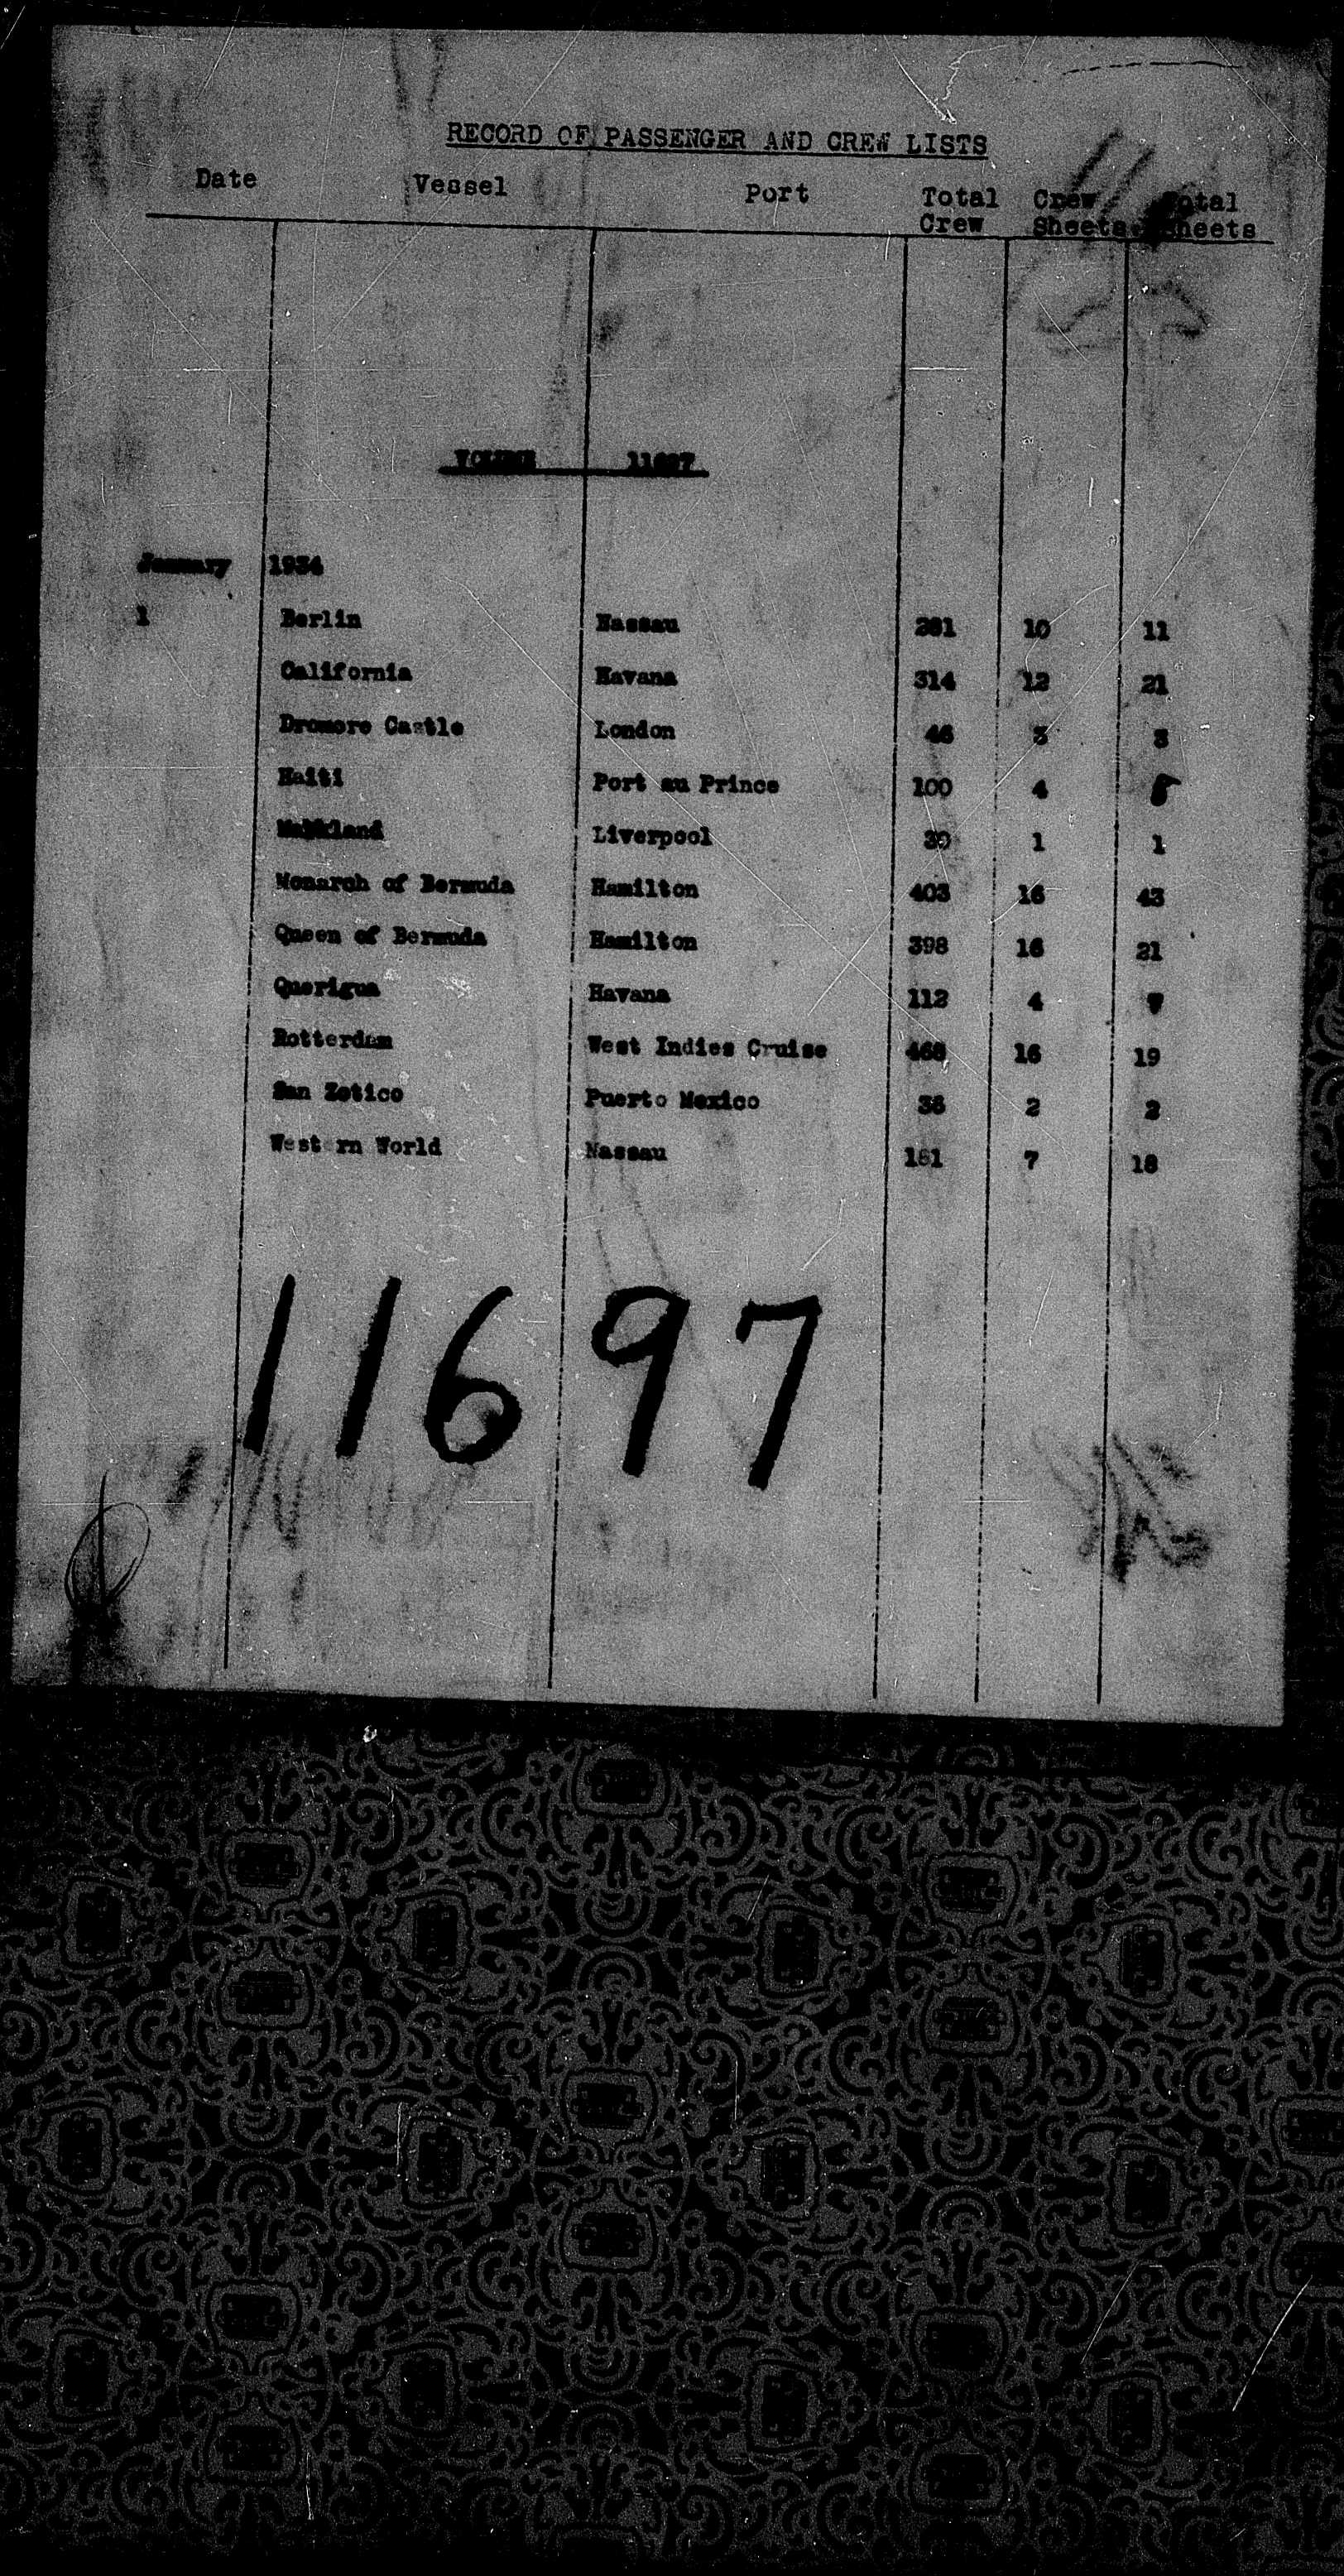 RECORD OF PASSENGER AND CREW LISTS
Date Vessel Port Total Crew Crew Sheets Total Sheets
VOLUME 11697
January 1934
1 Berlin Nassau 281 10 11
California Havana 314 12 21
Dromore Castle London 46 3 3
Haiti Port au Prince 100 4 5
Liverpool 30 1 1
Monarch of Bermuda Hamilton 403 16 43
Queen of Bermuda Hamilton 398 16 21
Querigua Havana 112 4 7
Rotterdam West Indies Cruise 468 16 19
San Zotico Puerto Mexico 36 2 2
Western World Nassau 181 7 18
11697